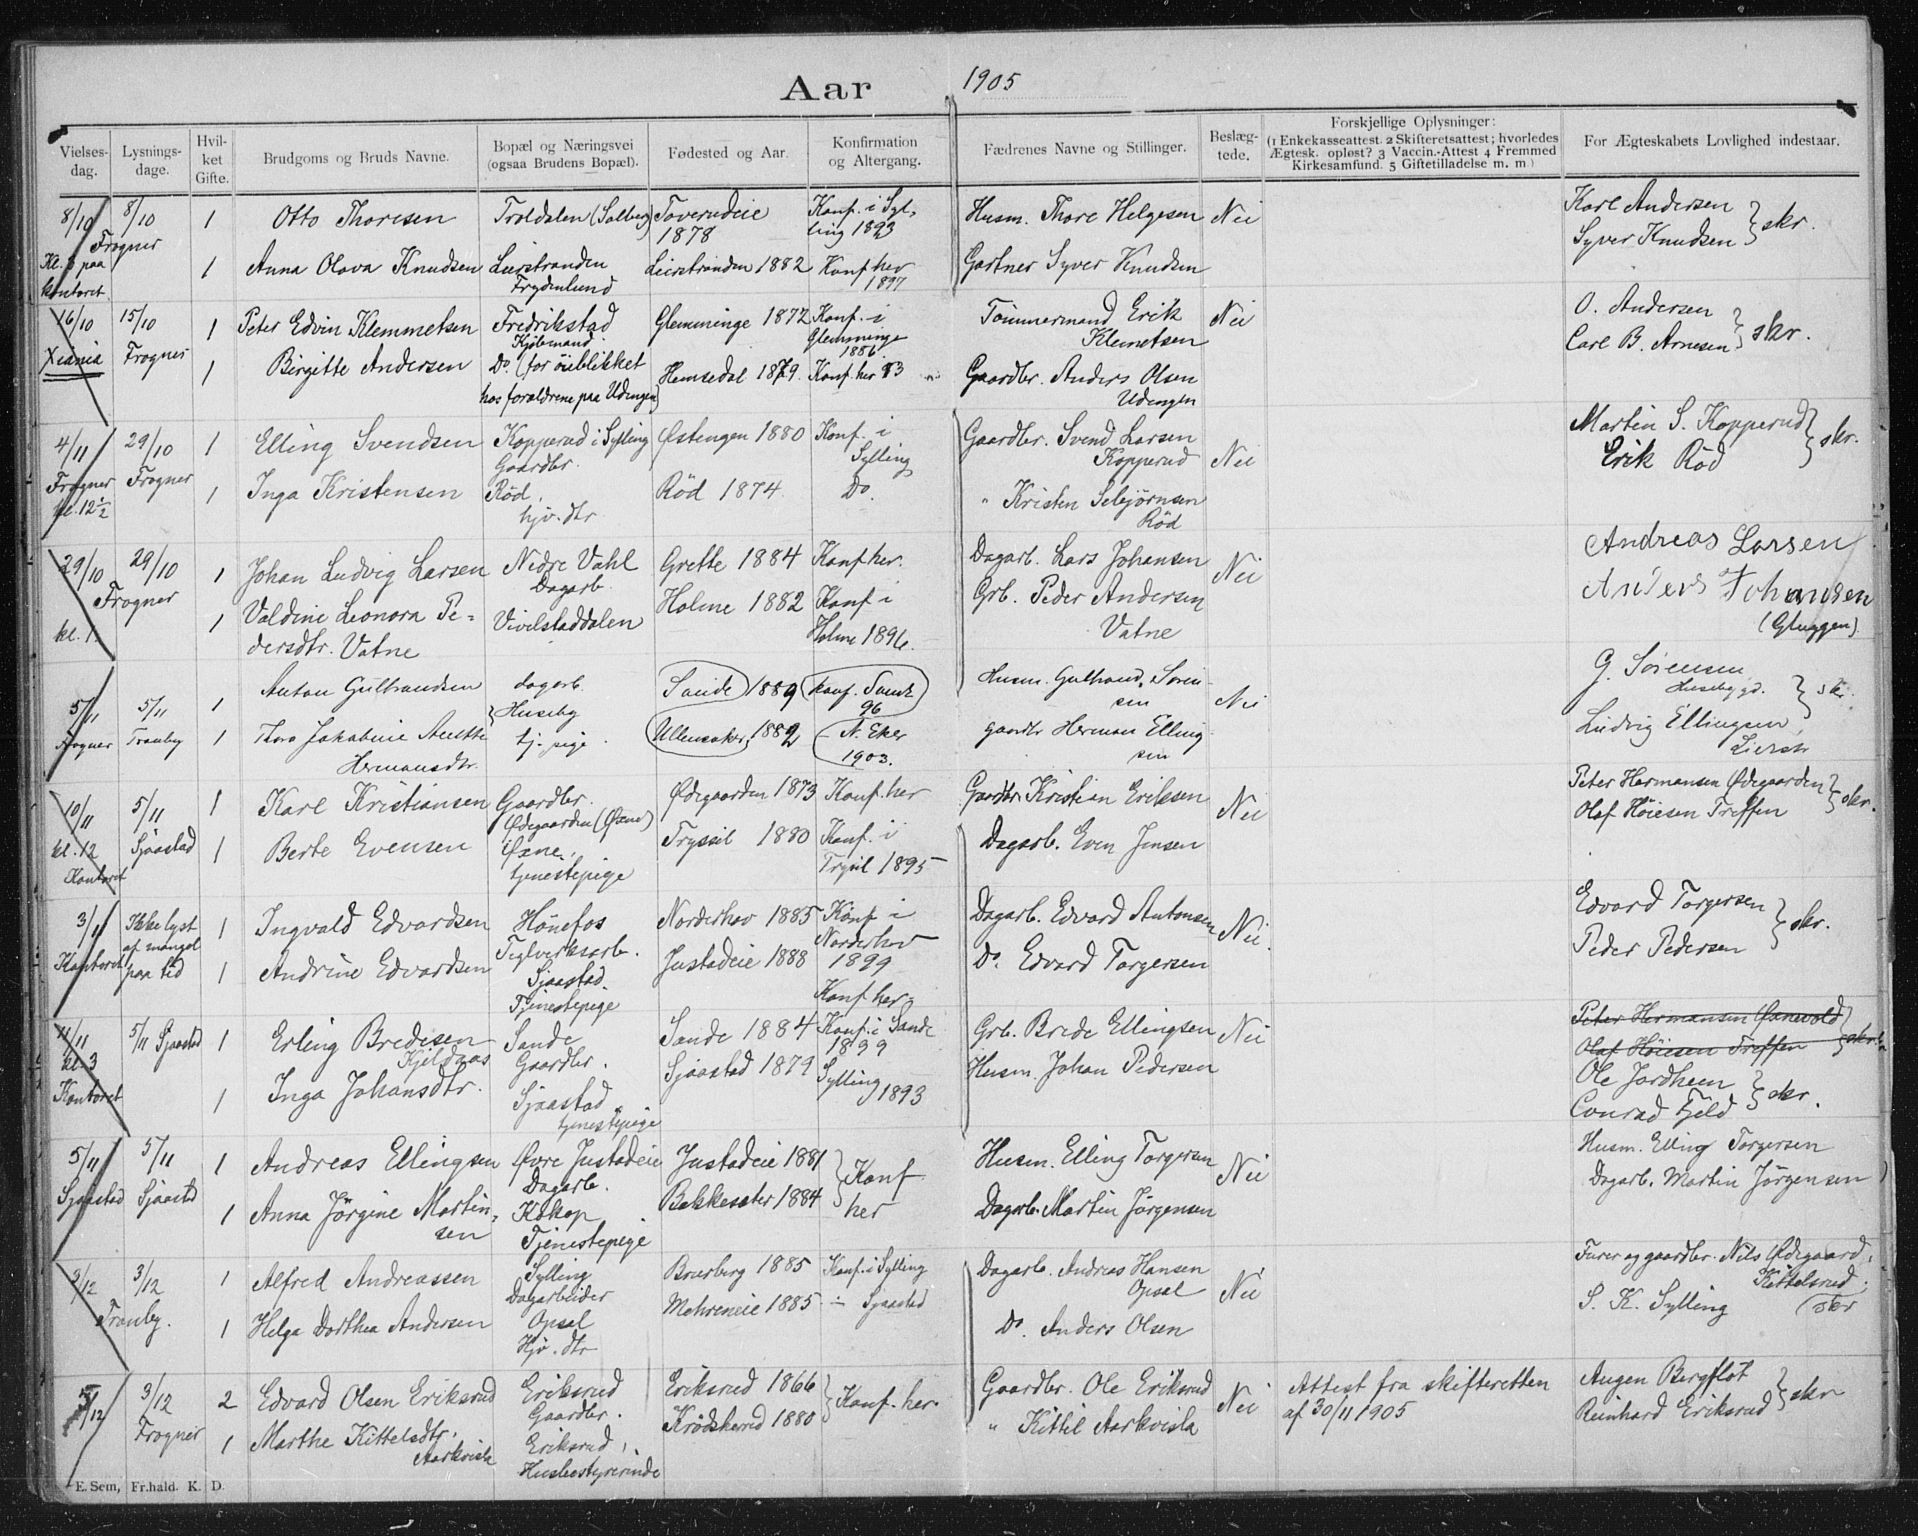 Aar 1905
Vielses-dag. Lysnings-dage. Hvil-ket Gifte. Brudgoms og Bruds Navne. Bopæl og Næringsvei (ogsaa Brudens Bopæl). Fødested og Aar. Konfirmation og Altergang. Fædrenes Navne og Stillinger. Beslæg-tede. Forskjellige Oplysninger: (1 Enkekasseattest. 2 Skifteretsattest; hvorledes Ægtesk. opløst? 3 Vaccin.-Attest 4 Fremmed Kirkesamfund. 5 Giftetilladelse m. m.) For Ægteskabets Lovlighed indestaar.
8/10 8/10 1 Otto Thoresen Troldalen (Solberg) Toverudeie 1878 Konf. i Syl-ling 1893 Husm. Thore Helgesen Nei Karl Andersen
Frogner Syver Knudsen } skr.
Kl. 3 paa kontoret 1 Anna Olava Knudsen Lierstranden Frydenlund Lierstranden 1882 Konf her 1897 Gartner Syver Knudsen
16/10 15/10 1 Peter Edvin Klemmetsen Fredrikstad Kjøbmand Glemminge 1872 Konf. i Glemminge 1886 Tømmermand Erik Klemetsen Nei O. Andersen
Xiania Frogner 1 Birgitte Andersen Do. (for øieblikket hos forældrene paa Udengen) Hemsedal 1879. Konf her 93 Gaardbr. Anders Olsen Udengen Carl B. Arnesen } skr.
4/11 29/10 1 Elling Svendsen Kopperud i Sylling Gaardbr. Østengen 1880 Konf. i Sylling Gaardbr. Svend Larsen Kopperud Nei Martin S. Kopperud
Frogner kl. 12½ Frogner 1 Inga Kristensen Rød. hjv. dtr Rød 1874. Do. " Kristen Rød Erik Rød } skr.
29/10 29/10 1 Johan Ludvig Larsen Nedre Vahl Dagarb. Grette 1884 Konf her. Dagarb. Lars Johansen Nei Andreas Larsen
Frogner kl. 1 1 Valdine Leonora Pe-dersdtr. Vatne Vivelstaddalen Holme 1882 Konf i Holme 1896. Grb. Peder Andersen Vatne Anders Johansen (Gluggen)
5/11 5/11 1 Anton Gulbrandsen dagarb. Huseby Sande 1889 Konf. Sande 96 Husm. Gulbrand Søren-sen Nei G. Sørensen Husebygd.
Frogner Tranby 1 Thora Jakobine Hermansdtr. tj. pige Ullensaker, 1882 N. Eker 1903. gaardbr Herman Elling-sen Ludvig Ellingsen, Lierstr } skr.
10/11 5/11 1 Karl Kristiansen Gaardbr. Ødegaarden (Øxne) Ødegaarden 1873 Konf. her Gaardbr. Kristian Eriksen Nei Peter Hermansen Ødegaarden
kl. 12 Kontoret Sjaastad 1 Berte Evensen Øxne. tjenestepige Tryssil 1880 Konf. i Trysil 1895 Dagarb. Even Jensen Olaf Høiesen Treffen } skr.
3/11 Ikke lyst af mangel paa tid 1 Ingvald Edvardsen Hønefos Teglverksarb. Norderhov 1885 Konf i Norderhov 1899 Dagarb. Edvard Antonsen Nei. Edvard Torgersen
Kontoret 1 Andrine Edvardsen Sjaastad. Tjenestepige Justadeie 1888 Konf her. Do. Edvard Torgersen Peder Pedersen } skr.
11/11 kl. 3 5/11 Sjaastad 1 Erling Bredesen Kjeldaas Sande Gaardbr. Sande 1884 Konf. i Sande 1899 Grb. Brede Ellingsen Nei Peter Hermansen
Olaf Høiesen Treffen } skr.
Kontoret 1 Inga Johansdtr. Sjaastad tjenestepige Sjaastad 1879 Sylling 1893 Husm. Johan Pedersen Ole Jordhem
Conrad Fjeld } skr.
5/11 5/11 1 Andreas Ellingsen Øvre Justadeie Dagarb. Justadeie 1881 } Konf her Husm. Elling Torgersen Nei Husm. Elling Torgersen
Sjaastad Sjaastad 1 Anna Jørgine Martin-sen Tjenestepige 1884 Dagarb. Martin Jørgensen Dagarb. Martin Jørgensen
3/12 3/12 1 Alfred Andreassen Sylling Dagarbeider 1885 Konf. i Sylling Dagarb. Andreas Hansen Opsal Nei gaardbr. Nils Ødegaard, Kittelsrud.
Tranby. 1 Helga Dorthea Andersen Opsal Hjv. dtr 1885 ÷ Sjaastad Do. Anders Olsen S. K. Sylling (skr
3/12 3/12 2 Edvard Olsen Eriksrud Eriksrud Gaardbr. Eriksrud 1866 } Konf. her. Gaardbr. Ole Eriksrud Nei Attest fra skifteretten af 30/11 1905 Augen Bergflot
Frogner 1 Marthe Kittelsdtr. Aarkvisla Eriksrud, Husbestyrerinde Krødsherred 1880 " Kittil Aarkvisla Reinhard Eriksrud } skr
E. Sem, Fr.hald. K. D.